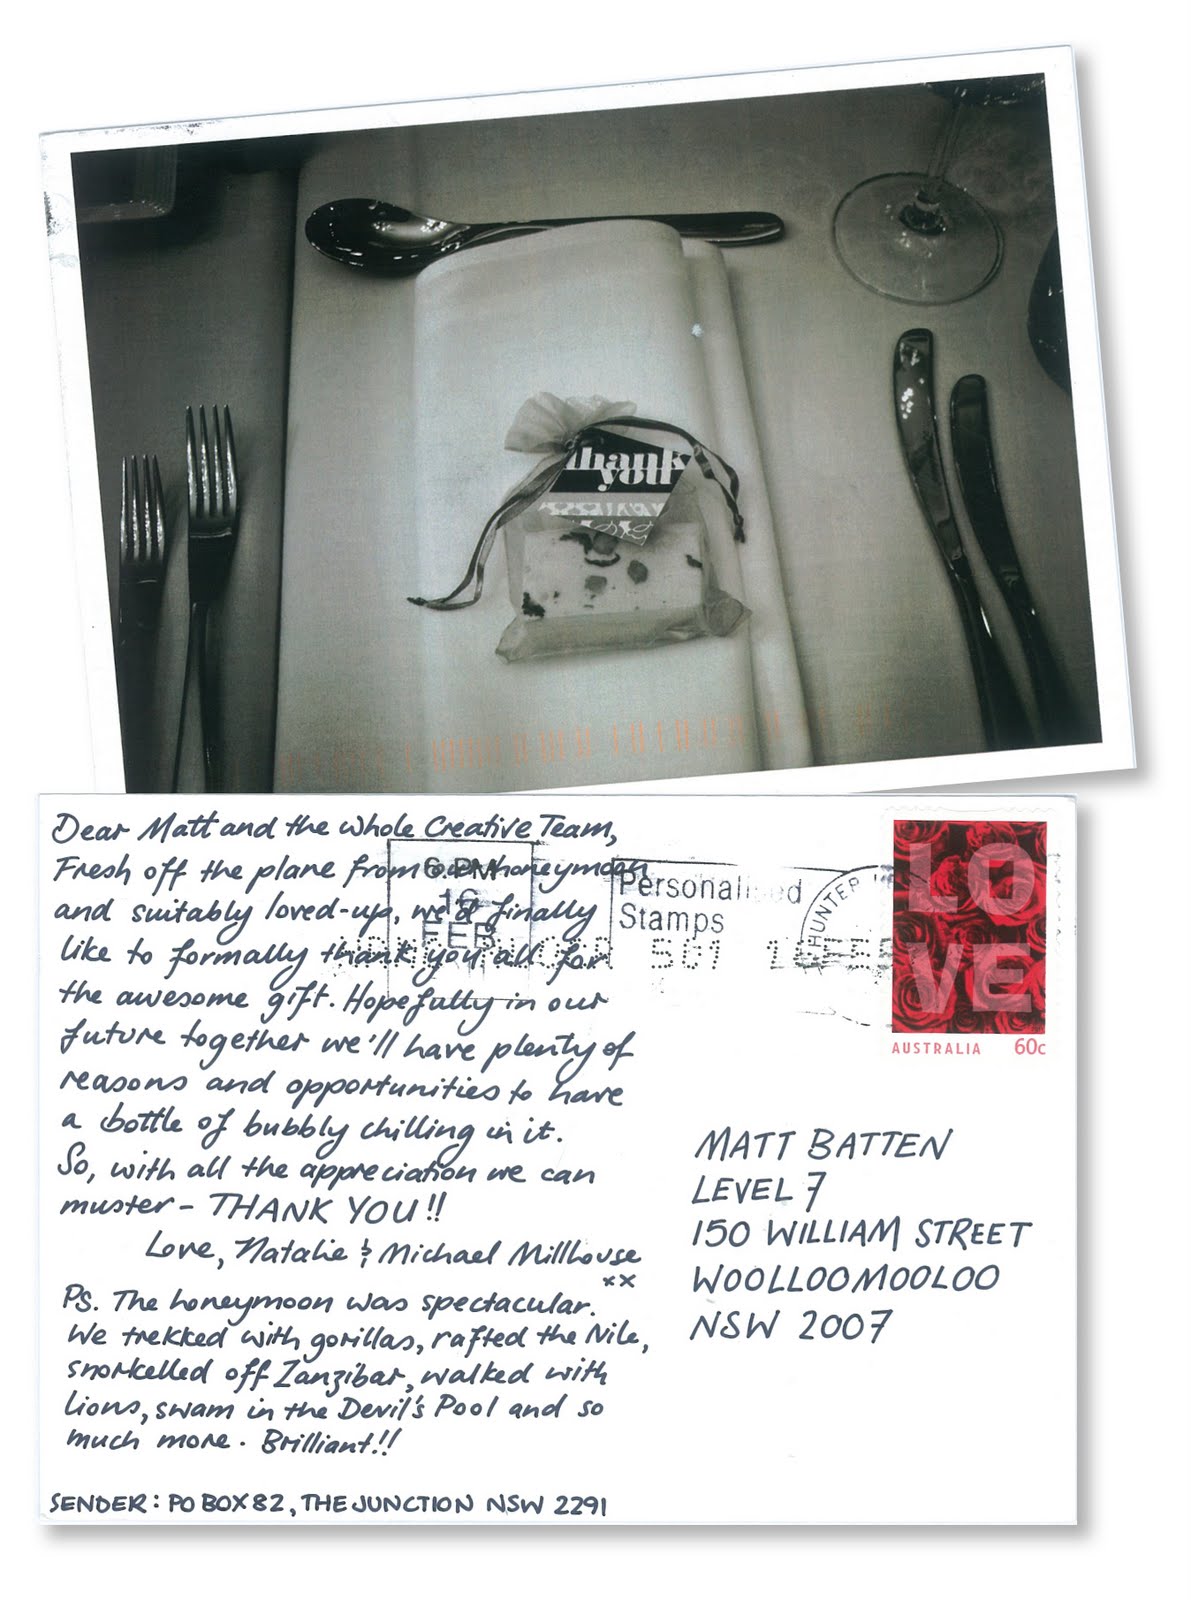 thank
you
Dear Matt and the whole Creative Team,
Fresh off the plane from our honeymoon
and suitably loved-up, we'd finally
like to formally thank you all for
the awesome gift. Hopefully in our
future together we'll have plenty of
reasons and opportunities to have
a bottle of bubbly chilling in it.
So, with all the appreciation we can
muster - THANK YOU!!
Love, Natalie & Michael Millhouse
xx
Ps. The honeymoon was spectacular.
We trekked with gorillas, rafted the Nile,
snorkelled off Zanzibar, walked with
lions, swam in the Devil's Pool and so
much more. Brilliant!!
SENDER: PO BOX 82, THE JUNCTION NSW 2291
6 PM
16
FEB
Personalised
Stamps
HUNTER
501
LO
VE
AUSTRALIA 60c
MATT BATTEN
LEVEL 7
150 WILLIAM STREET
WOOLLOOMOOLOO
NSW 2007